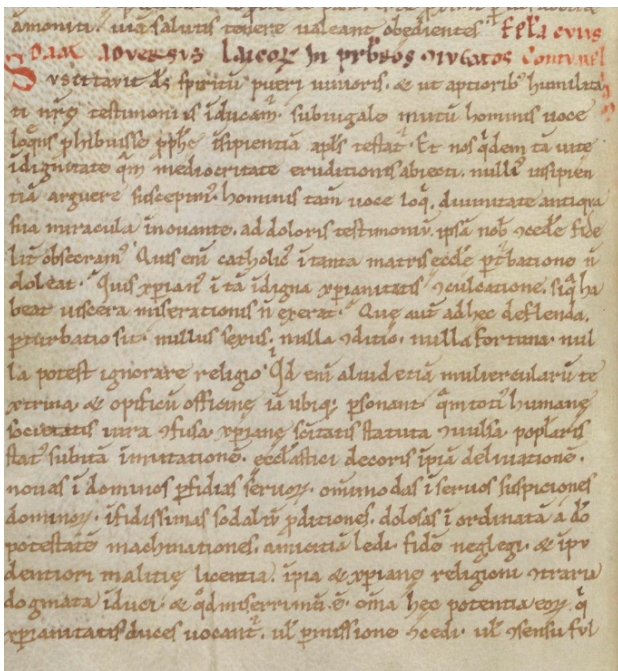 amoniti. uiā salutis tenere ualeant obedientes. Epl̄a cuius
DAM ADVERSVS LAICORꝜ IN pr̄br̄os ꝯiugatos
Suscitauit ds̄ spiritū pueri iunioris. & ut aptiorib; humilita
ti nrę testimoniis iducam᷒. subiugale mutū hominis uoce
loqns phibuisse ꝓphe isipientiā apl̄s testat᷒. Et nos qdem tā uite
idignitate qm mediocritate eruditionis abiecti. nulli᷒ insipien
tiā arguere suscepim᷒. hominis tam̄ uoce loq. diuinitate antiqua
sua miracula īnouante. ad doloris testimoniū. ipsā nob̄ ꝯcede fide
lit̄ obsecram᷒. Quis eni catholic᷒ i tanta matris eccl̄e ꝑt᷒batione n̄
doleat. Quis xp̄ian᷒ i tā idigna xp̄ianitatis ꝯculcatione. siq̄ ha
beat uiscera miserationis n̄ exerat. Quę aut̄ ad hec deflenda.
ꝑturbatio sit. nullus sexus. nulla ꝯditio. nulla fortuna. nul
la potest ignorare religio. Qd eni aliud etiā muliercularū te
xtrina. & opificū officinę iā ubiq; ꝑsonant. qm toti᷒ humanę
societatis iura ꝯfusa. xp̄ianę scītatis statuta ꝯuulsa. popl̄aris
stat᷒ subitā imutationē. eccl̄astici decoris ipiā deliuationē.
nouas i dominos ꝑfidias seruoꝝ. omimodas i seruos suspiciones
dominoꝝ. ifidissimas sodaliū ꝓditiones. dolosas i ordinatā a dō
potestatē machinationes. amicitiā ledi. fidē neglegi. & ipu
dentiori malitię licentia. ipia & xp̄ianę religioni ꝯtraria
dogmata iduci. & qd miserrimū ē. om̄a hec potentia eoꝝ. q̄
xp̄ianitatis duces uocant᷒. ul̄ ꝑmissione ꝯcedi. ul̄ ꝯsensu ful